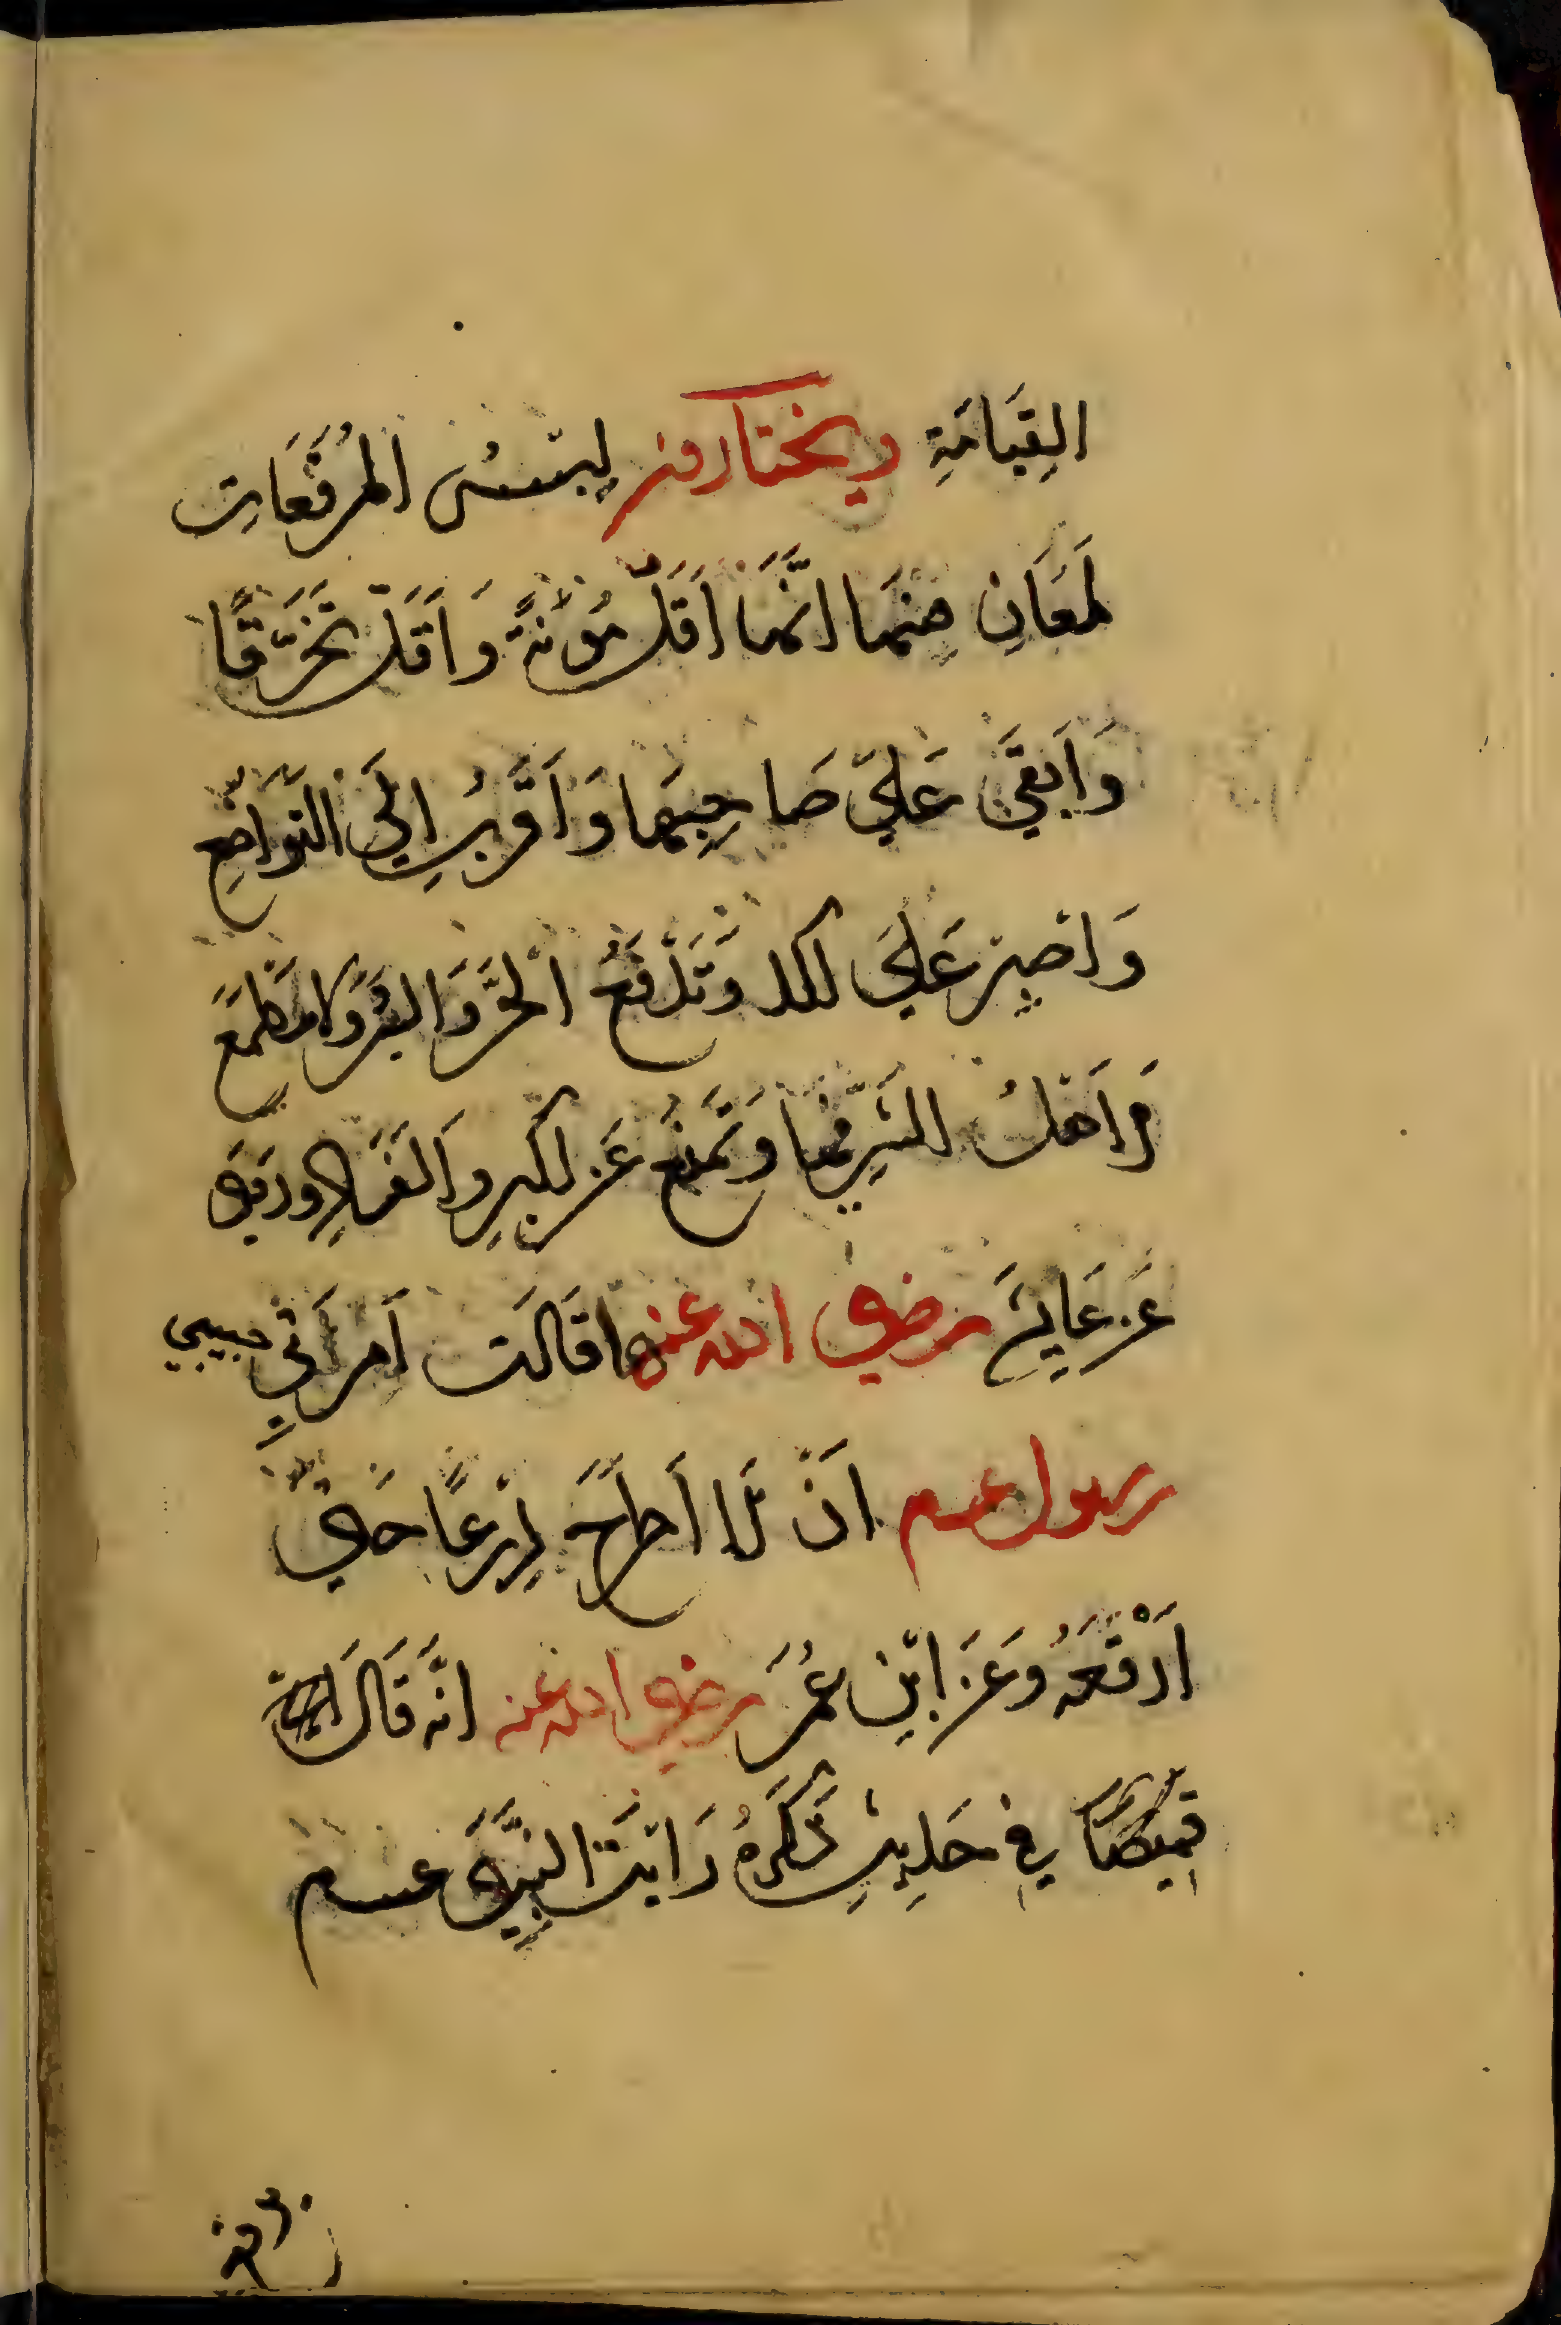 القِيَامَةِ ويختارون لِبْسُ المُرَقَّعَاتِ
لَمَعَانِ مِنهَا انَّهَا اَقَلّ مُؤنَةً وَاَقَلّ تَخَرُّقًا
وَاَبقَى عَلَى صَاحِبِهَا وَاَقْرَبُ اِلَى التَّوَاضُعِ
وَاصبر عَلَى الكد وَتَدْفَعُ الْحَرَّ وَالبَرْدَ وَلَا مَطْمَعَ
لِاَهْلِ الشَّرِ فيها وَتَمْنَعُ عَنِ الكِبْرِ وَ وَرُوِىَ
عَن عَايِشَةَ رضى الله عنها قَالَت اَمَرَنِي حبيبي
رسول عسم اَنْ لَا اَطرَحَ دِرْعًا حَتَّى
اَرْقَعَهُ وَعَن ابْنِ عُمَرَ رضي الله عنه انَّه قَالَ
فِي حَدِيثٍ ذَكَرَهُ رَايْتَ النَّبِيَّ عسم